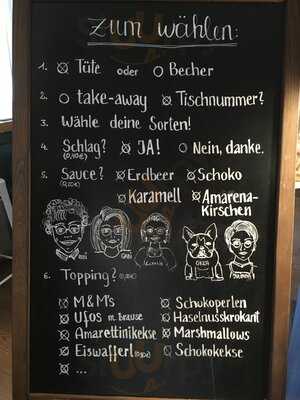 zum wählen:
1. Tüte oder Becher
2. take-away Tischnummer?
3. Wähle deine Sorten!
4. Schlag? JA! Nein, danke.
(0,40€)
5. Sauce? Erdbeer Schoko
(0,20€)
Karamell Amarena-
Kirschen
6. Topping?
M&M's Schokoperlen
Ufos m. Brause Haselnusskrokant
Amarettinikekse Marshmallows
Eiswafferl Schokokekse
...